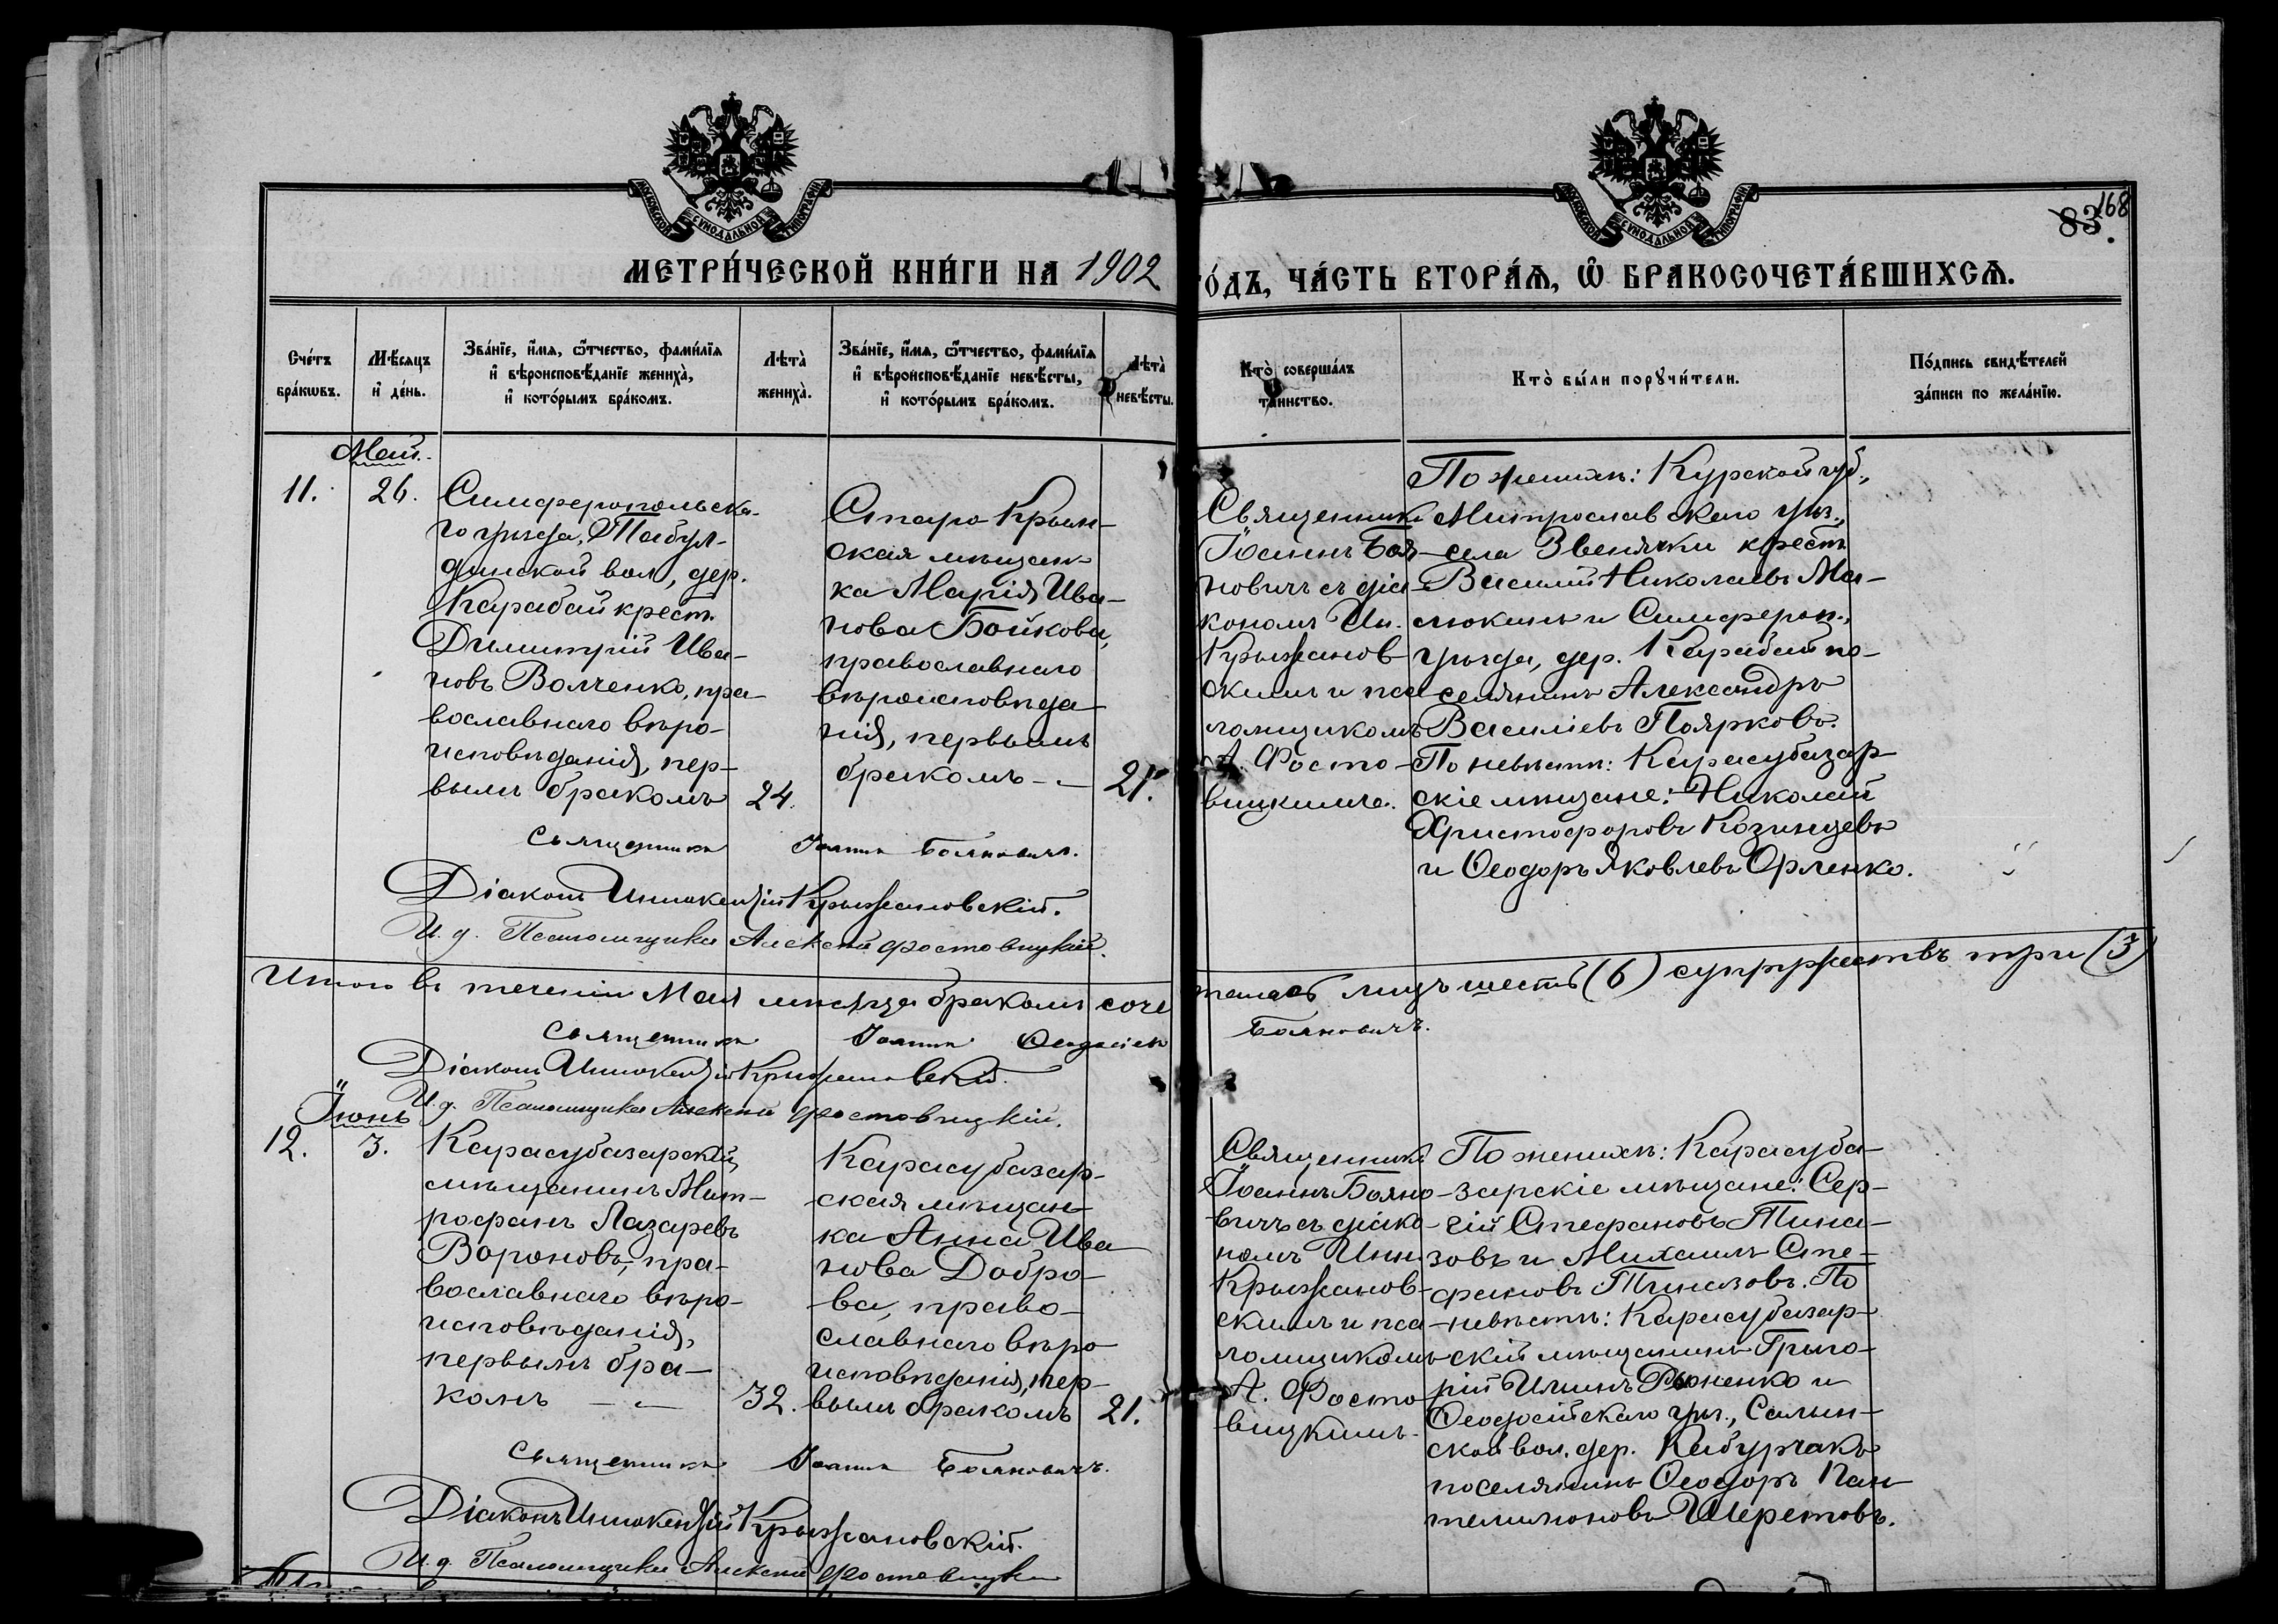 МОСКОВСКОЙ СѴНОДАЛЬНОЙ ТИПОГРАФІИ
МОСКОВСКОЙ СѴНОДАЛЬНОЙ ТИПОГРАФІИ
168
83.
МЕТРИ́ЧЕСКОЙ КНИ́ГИ НА 1902
ГО́ДЪ, ЧА́СТЬ ВТОРА́Ѧ, Ѡ҆ БРАКОСОЧЕТА́ВШИХСѦ.
Сче́тъ
бра́кѡвъ.
Мѣ́сяцъ
и҆ де́нь.
Зва́нїе, и҆́мѧ, ѻ҆́тчество, фами́лїѧ
и҆ вѣроисповѣ́данїе жениха̀,
и҆ кото́рымъ бра́комъ.
Лѣта̀
жениха̀.
Зва́нїе, и҆́мѧ, ѻ҆́тчество, фами́лїѧ
и҆ вѣроисповѣ́данїе невѣ́сты,
и҆ кото́рымъ бра́комъ.
Лѣта̀
невѣ́сты.
Кто̀ соверша́лъ
та́инство.
Кто̀ бы́ли порꙋчи́тели.
По́дпись свидѣ́телей
за́писи по жела́нїю.
Май.
11.
26.
Симферопольска-
го уѣзда, Табул-
динской вол., дер.
Карабай крест.
Димитрій Ива-
новъ Волченко, пра-
вославнаго вѣро-
исповѣданія, пер-
вымъ бракомъ
24.
Старо-Крым-
ская мѣщан-
ка Марія Ива-
нова Бойкова,
православнаго
вѣроисповѣда-
нія, первымъ
бракомъ
21.
Священникъ
Іоаннъ Боя-
новичъ съ діа-
кономъ Ин.
Крыжанов-
скимъ и пса-
ломщикомъ
А. Фосто-
вицкимъ.
По женихѣ: Курской губ.,
уѣз.,
села Звенячки крест.
Василій Николаевъ Ма-
и Симфероп.,
уѣзда, дер. Карабай по-
селянинъ Александръ
Василіевъ Поярковъ.
По невѣстѣ: Карасубазар-
скіе мѣщане: Николай
Христофоровъ Козинцевъ
и Ѳеодоръ Яковлевъ Орленко.
Священникъ Іоаннъ Бояновичъ.
Діаконъ Иннокентій Крыжановскій.
И. д. Псаломщика Алексѣй Фостовицкій.
Итого въ теченіи Мая мѣсяца бракомъ соче
талось лицъ шесть (6) супружествъ три (3)
Священникъ Іоаннъ
Бояновичъ.
Діаконъ Иннокентій Крыжановскій.
И. д. Псаломщика Алексѣй Фостовицкій.
Іюнь
12.
3.
Карасубазарскій
мѣщанинъ Мит-
рофанъ Лазаревъ
Вороновъ, пра-
вославнаго вѣро-
исповѣданія,
первымъ бра-
комъ
32.
Карасубазар-
ская мѣщан-
ка Анна Ива
нова Добро-
ва, право-
славнаго вѣро
исповѣданія, пер-
вымъ бракомъ
21.
Священникъ
Іоаннъ Бояно-
вичъ съ діако-
номъ Инн.
Крыжанов-
скимъ и пса-
ломщикомъ
А. Фосто
вицкимъ.
По женихѣ: Карасуба-
зарскіе мѣщане: Сер-
гій Стефановъ Тина-
зовъ и Михаилъ Сте-
фановъ Тиназовъ. По
невѣстѣ: Карасубазар-
скій мѣщанинъ Григо-
рій Ильинъ и
Ѳеодосійскаго уѣз., Салын-
ской вол. дер. Кабурчакъ
поселянинъ Ѳеодоръ Пан
телимоновъ Шереметовъ.
Священникъ Іоаннъ Бояновичъ.
Діаконъ Иннокентій Крыжановскій.
И. д. Псаломщика Алексѣй Фостовицкій